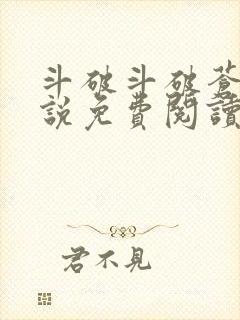 斗破斗破蒼
說免費閱讀
君不見